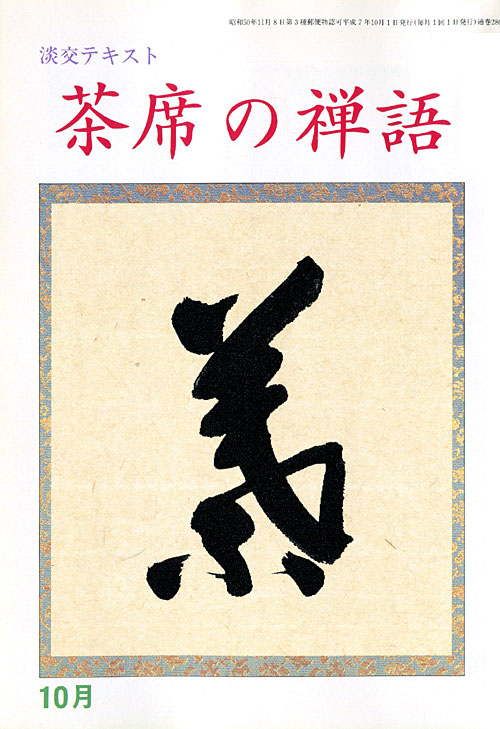 昭和50年11月8日第3種郵便物認可平成7年10月1日発行(毎月1回1日発行)通巻286
淡交テキスト
茶席の禅語
10月